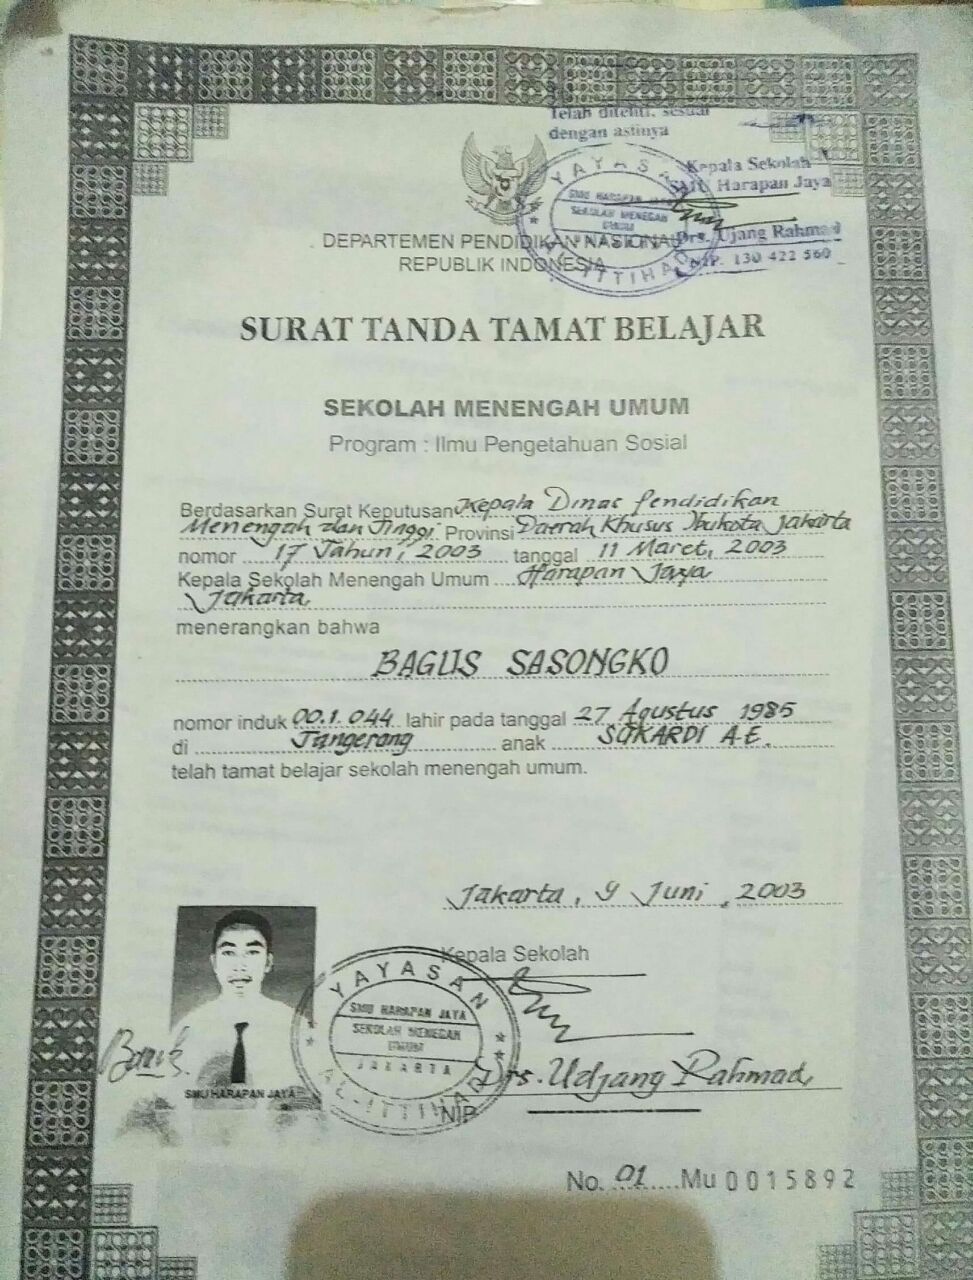 Telah diteliti, sesuai
dengan aslinya
Kepala Sekolah
SMU Harapan Jaya
YAYASAN
SMU HARAPAN JAYA
SEKOLAH MENEGAH
UMUM
AL-ITTIHAD
Drs. Ujang Rahmad
NIP. 130 422 560
DEPARTEMEN PENDIDIKAN NASIONAL
REPUBLIK INDONESIA
SURAT TANDA TAMAT BELAJAR
SEKOLAH MENENGAH UMUM
Program : Ilmu Pengetahuan Sosial
Berdasarkan Surat Keputusan Kepala Dinas Pendidikan
Menengah dan Tinggi Provinsi Daerah Khusus Ibukota Jakarta
nomor 17 Tahun, 2003 tanggal 11 Maret, 2003
Kepala Sekolah Menengah Umum Harapan Jaya
Jakarta
menerangkan bahwa
BAGUS SASONGKO
nomor induk 00.1.044 lahir pada tanggal 27 Agustus 1985
di Tangerang anak SUKARDI A.E.
telah tamat belajar sekolah menengah umum.
Jakarta, 9 Juni, 2003
Kepala Sekolah
YAYASAN
SMU HARAPAN JAYA
SEKOLAH MENEGAH
UMUM
JAKARTA
AL-ITTIHAD
Drs. Udjang Rahmad
NIP
SMU HARAPAN JAYA
No. 01 Mu 0015892